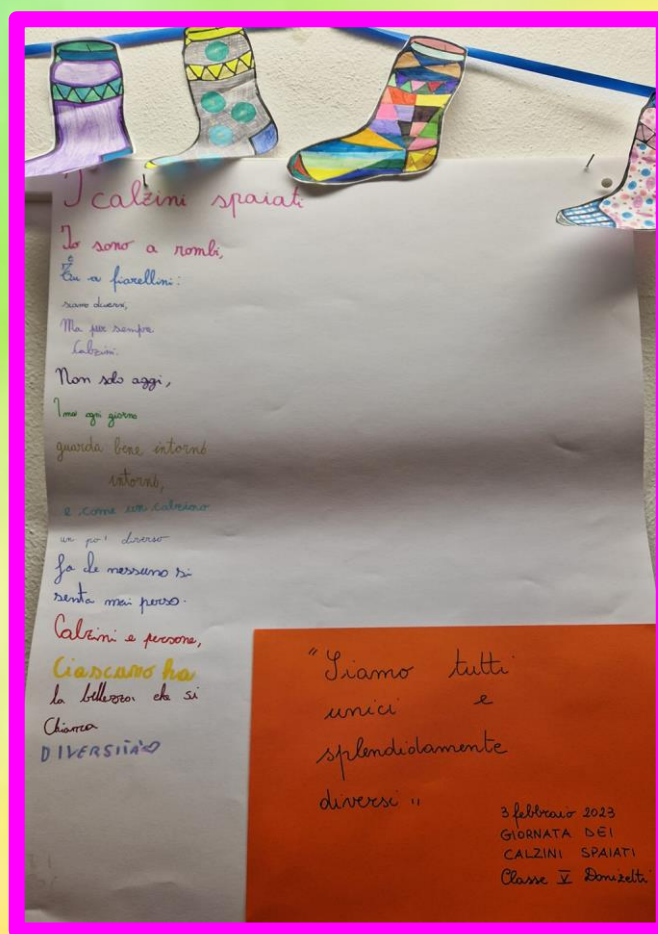 I calzini spaiati
Io sono a rombi,
tu a fiorellini:
siamo diversi,
Ma pur sempre
Calzini.
Non solo oggi,
ma ogni giorno
guarda bene intorno
intorno,
e come un calzino
un po' diverso
fa che nessuno si
senta mai perso.
Calzini e persone,
Ciascuno ha
la bellezza che si
Chiama
DIVERSITÀ
"Siamo tutti
unici e
splendidamente
diversi"
3 febbraio 2023
GIORNATA DEI
CALZINI SPAIATI
Classe V Donizetti